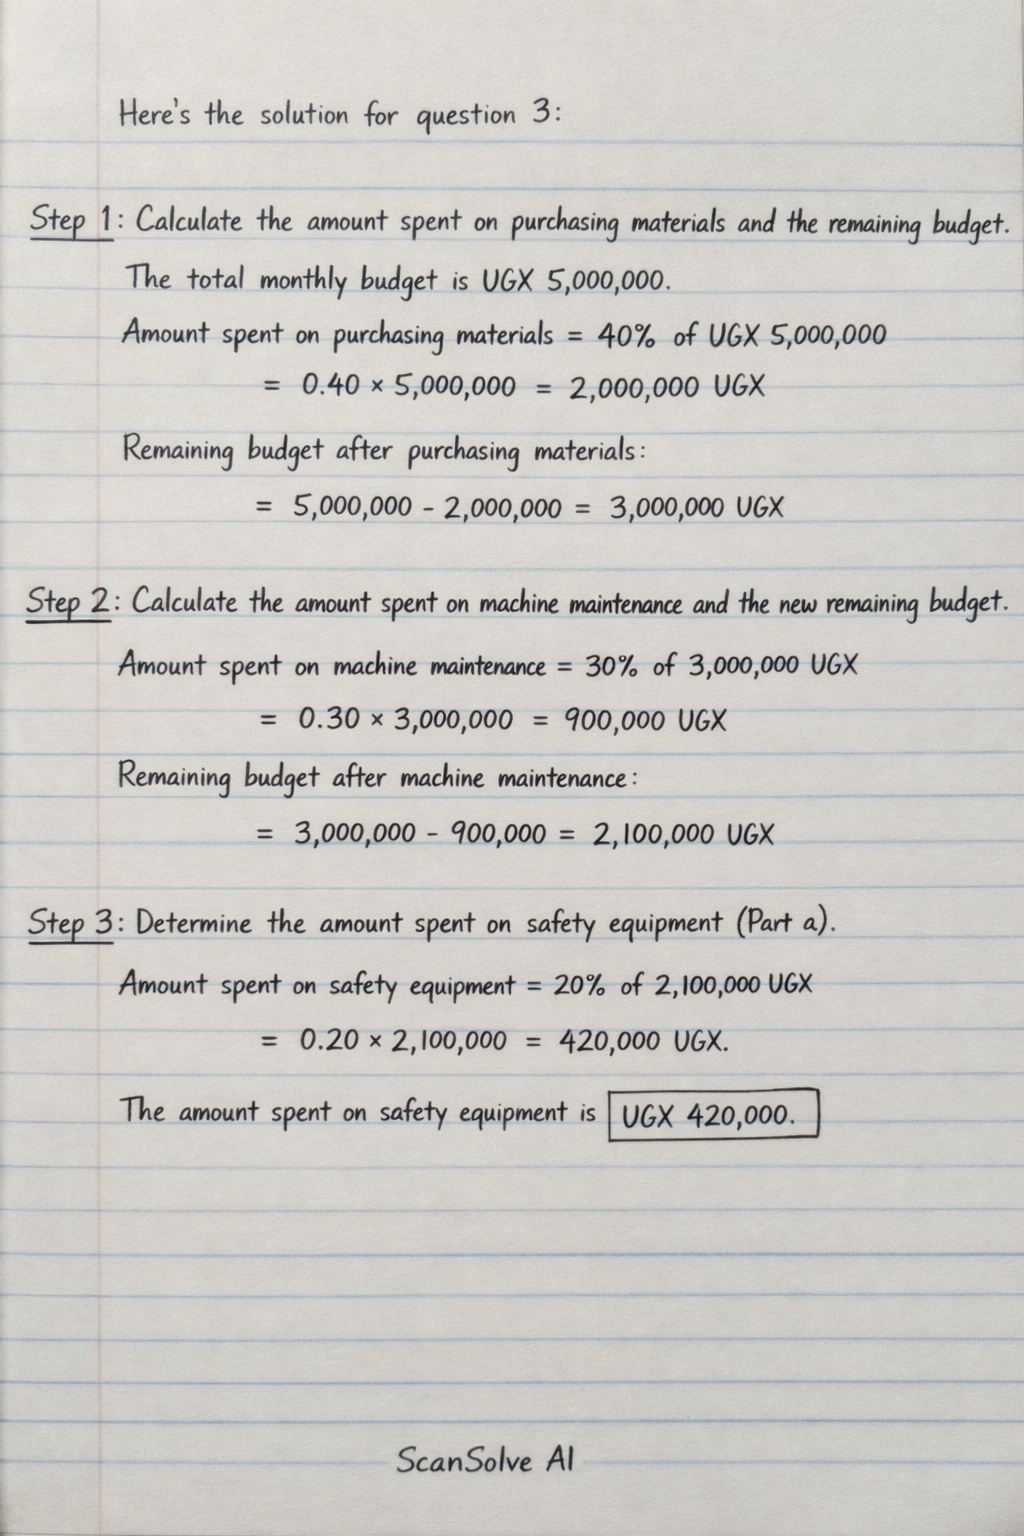 Here's the solution for question 3:
Step 1: Calculate the amount spent on purchasing materials and the remaining budget.
The total monthly budget is UGX 5,000,000.
Amount spent on purchasing materials = 40% of UGX 5,000,000
= 0.40 × 5,000,000 = 2,000,000 UGX
Remaining budget after purchasing materials:
= 5,000,000 - 2,000,000 = 3,000,000 UGX
Step 2: Calculate the amount spent on machine maintenance and the new remaining budget.
Amount spent on machine maintenance = 30% of 3,000,000 UGX
= 0.30 × 3,000,000 = 900,000 UGX
Remaining budget after machine maintenance:
= 3,000,000 - 900,000 = 2,100,000 UGX
Step 3: Determine the amount spent on safety equipment (Part a).
Amount spent on safety equipment = 20% of 2,100,000 UGX
= 0.20 × 2,100,000 = 420,000 UGX.
The amount spent on safety equipment is UGX 420,000.
ScanSolve AI